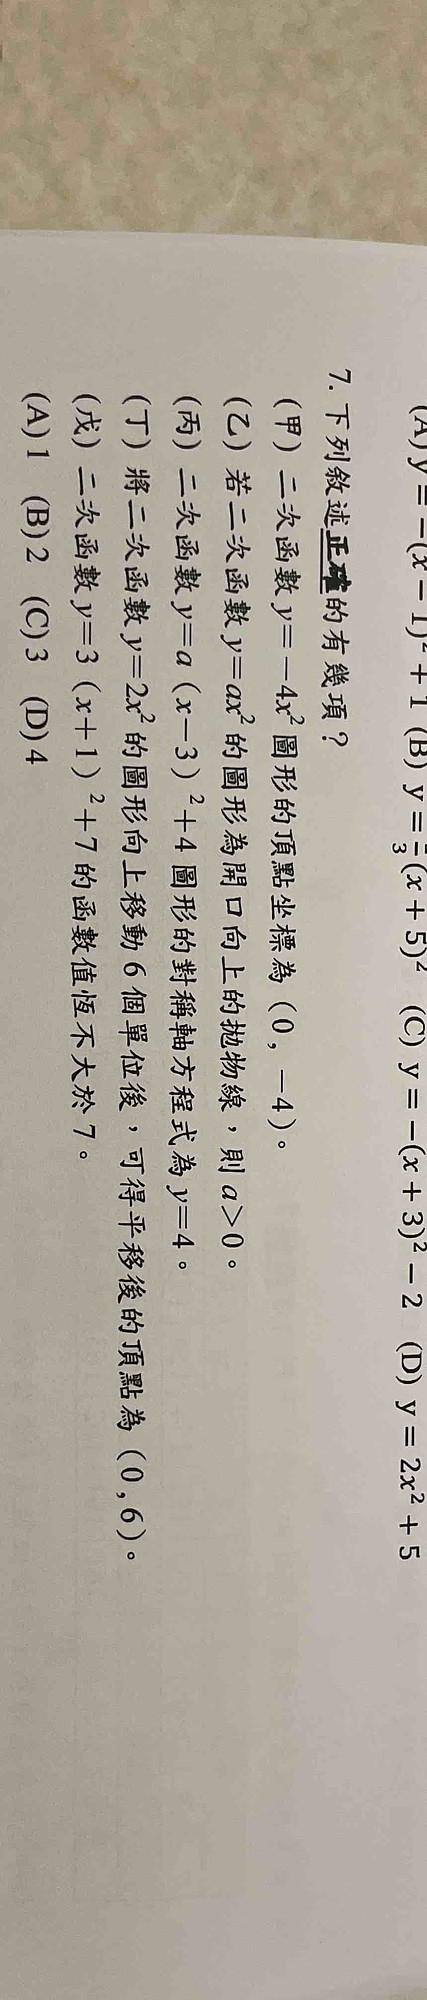 (A) y = −(x − 1)² + 1 (B) y = (x + 5)² (C) y = −(x + 3)² − 2 (D) y = 2x² + 5
7. 下列敘述正確的有幾項？
(甲) 二次函數 y=−4x² 圖形的頂點坐標為 (0, −4)。
(乙) 若二次函數 y=ax² 的圖形為開口向上的拋物線，則 a>0。
(丙) 二次函數 y=a (x−3)²+4 圖形的對稱軸方程式為 y=4。
(丁) 將二次函數 y=2x² 的圖形向上移動 6 個單位後，可得平移後的頂點為 (0, 6)。
(戊) 二次函數 y=3 (x+1)²+7 的函數值恆不大於 7。
(A) 1 (B) 2 (C) 3 (D) 4